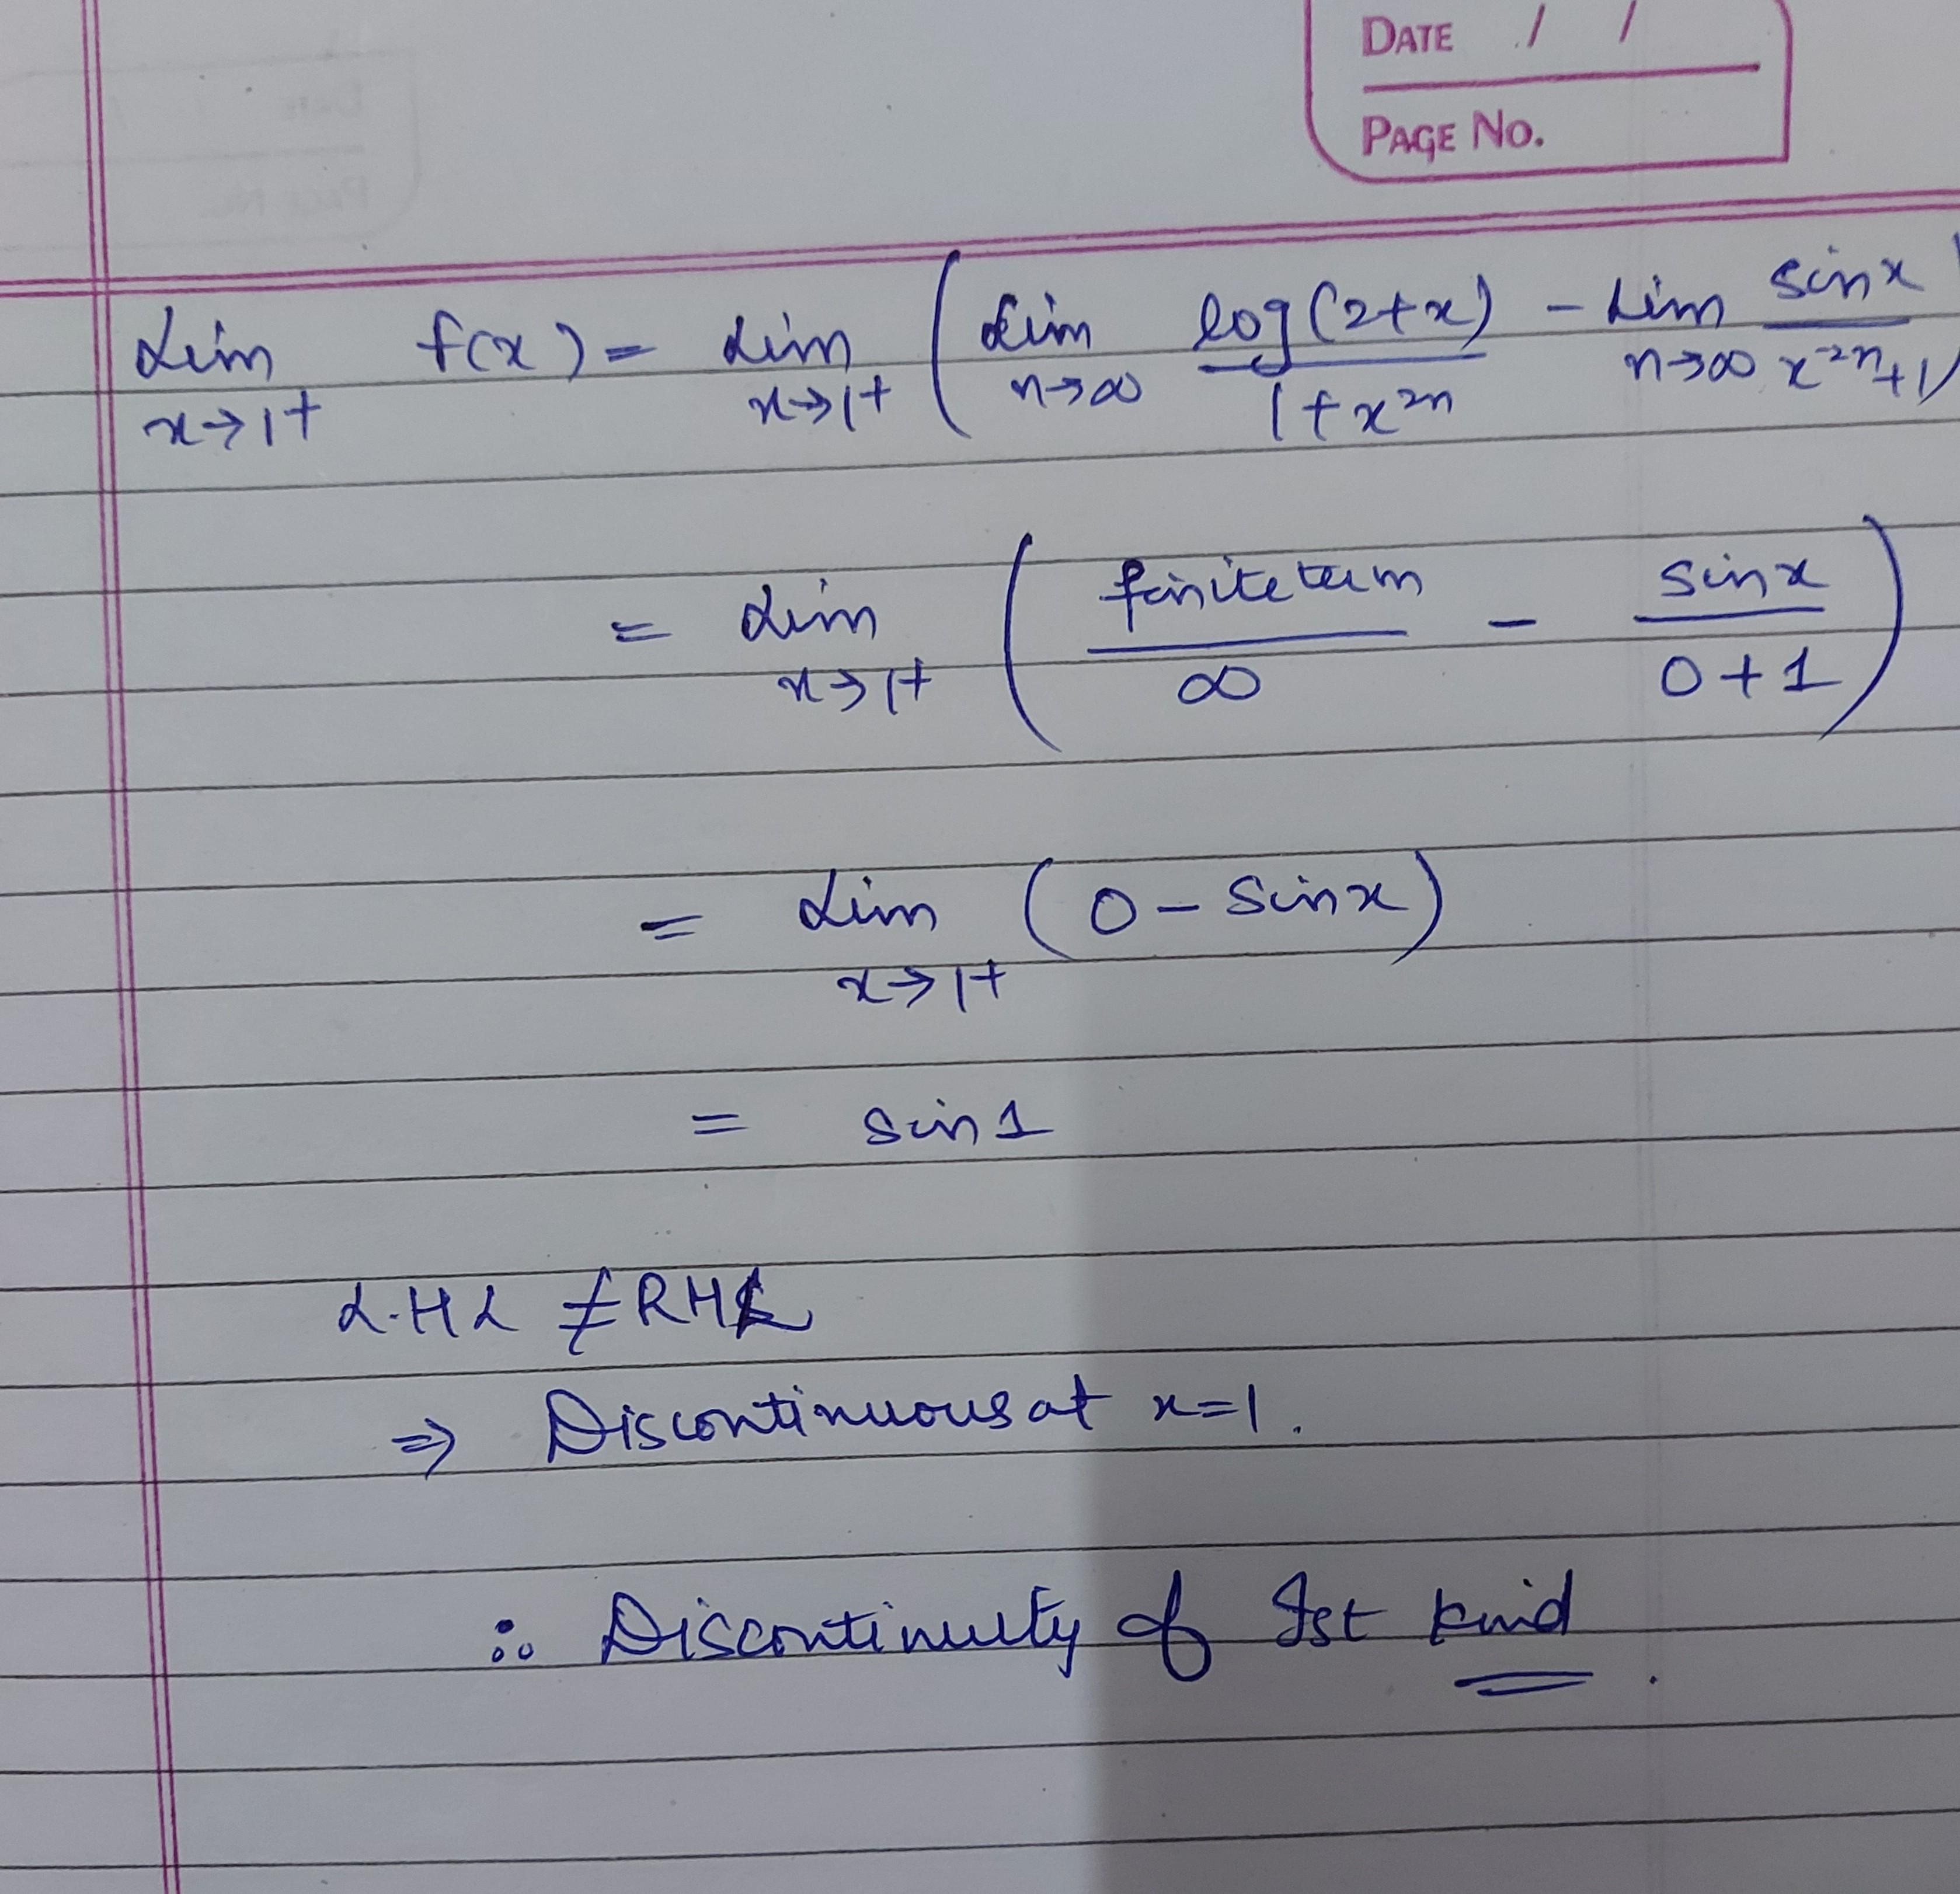 DATE / /
PAGE NO.
Lim x→1+ f(x) = Lim x→1+ ( Lim n→∞ log(2+x) / 1+x^2n - Lim n→∞ sinx / x^-2n+1 )
= Lim x→1+ ( finite term / ∞ - sinx / 0+1 )
= Lim x→1+ ( 0 - sinx )
= sin1
L.HL ≠ RHL
⇒ Discontinuous at x=1.
∴ Discontinuity of Ist kind.